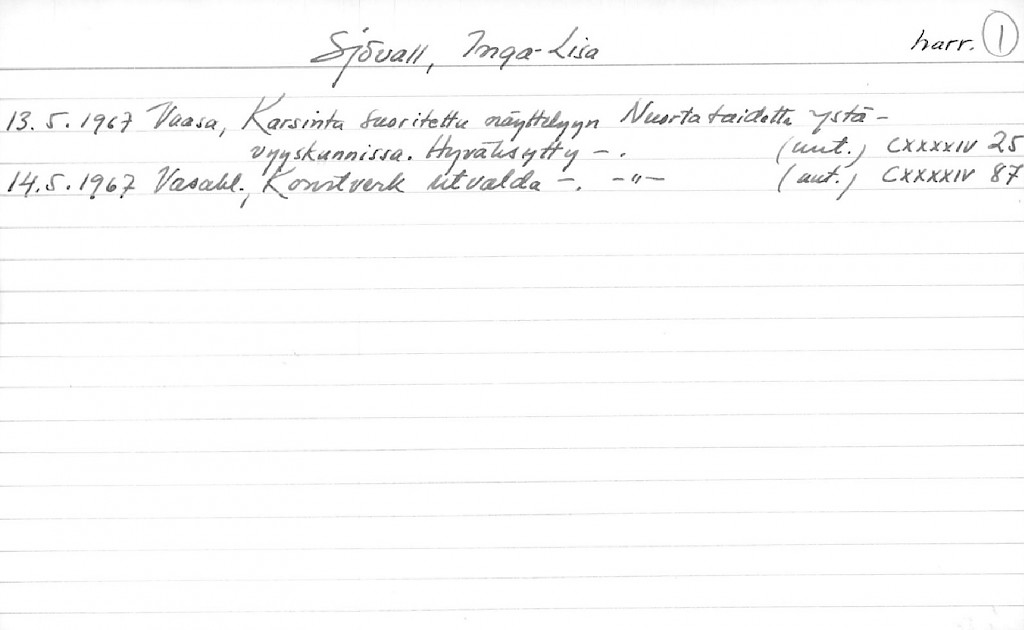 Sjövall, Inga-Lisa harr. 1
13.5.1967 Vaasa, Karsinta suoritettu näyttelyyn Nuorta taidetta ystä-
vyyskunnissa. Hyväksytty -. (uut.) CXXXXIV 25
14.5.1967 Vasabl., Konstverk utvalda -. -"- (uut.) CXXXXIV 87